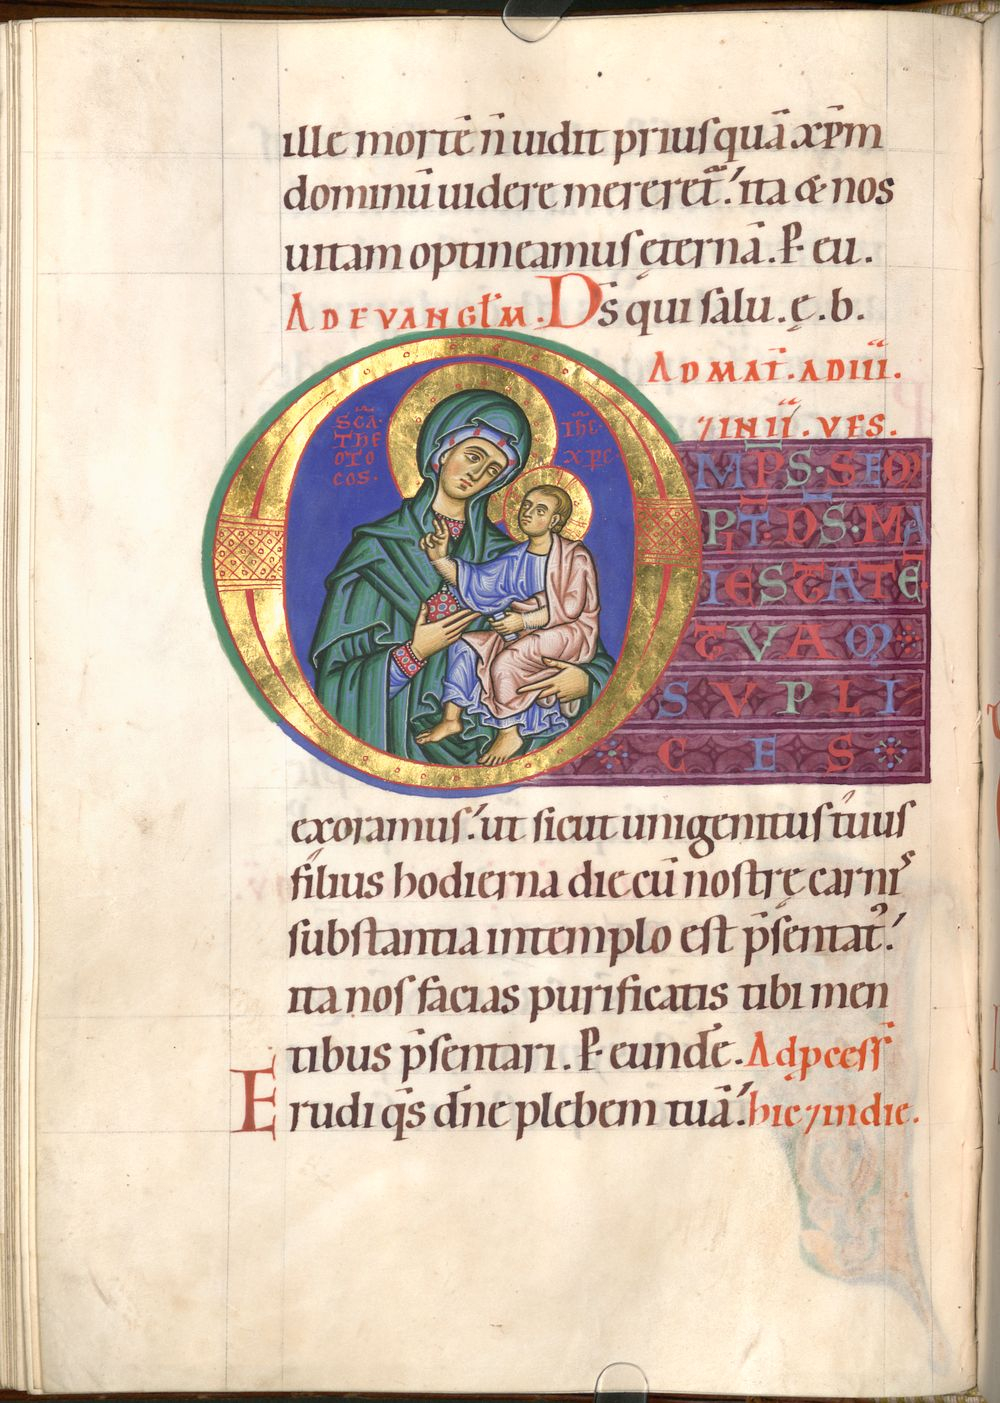 ille mortē n̄ uidit priusquā xp̄m
dominū uidere mereret᷑. ita & nos
uitam optineamus ęternā. P eu.
AD EVANGL̄M. Ds̄ qui salu. ę. b.
AD MAT̄. AD III.
⁊ IN II. VES.
SC̄A
THE
OTO
COS.
IHC
XPC
OMPS. SEM
PIT. DS̄. MA
IESTATĒ
TVAM
SVPLI
CES
exoramus. ut sicut unigenitus tuus
filius hodierna die cū nostrę carnis
substantia in templo est p̄sentat᷑.
ita nos facias purificatis tibi men
tibus p̄sentari. P eundē. Ad p̱cess̄
Erudi qs̄ dn̄e plebem tuā. hic ⁊ in die.